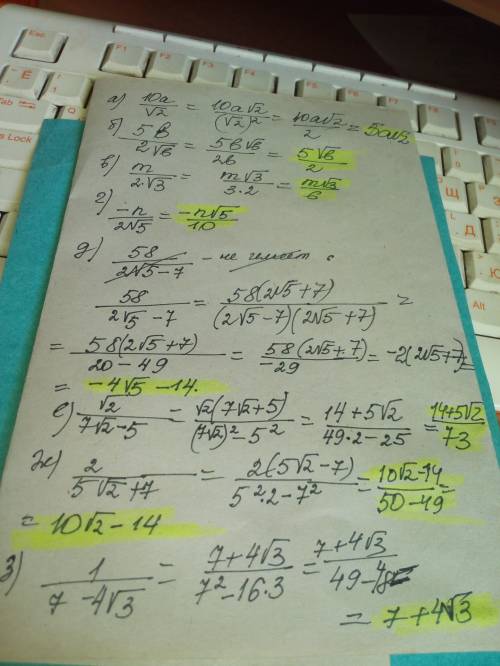 Esc
F1
F2
F3
F4
Tab
Alt
Щ
Д
а) 10a/√2 = 10a√2/(√2)² = 10a√2/2 = 5a√2
б) 5b/2√b = 5b√b/2b = 5√b/2
в) m/2·√3 = m√3/3·2 = m√3/6
г) -n/2√5 = -n√5/10
д) 58/2√5-7 - не имеет
58/2√5-7 = 58(2√5+7)/(2√5-7)(2√5+7) =
= 58(2√5+7)/20-49 = 58(2√5+7)/-29 = -2(2√5+7)=
= -4√5-14.
е) √2/7√2-5 - √2(7√2+5)/(7√2)²-5² = 14+5√2/49·2-25 = 14+5√2/73
ж) 2/5√2+7 = 2(5√2-7)/5²·2-7² = 10√2-14/50-49 =
= 10√2-14
з) 1/7-4√3 = 7+4√3/7²-16·3 = 7+4√3/49-48
= 7+4√3